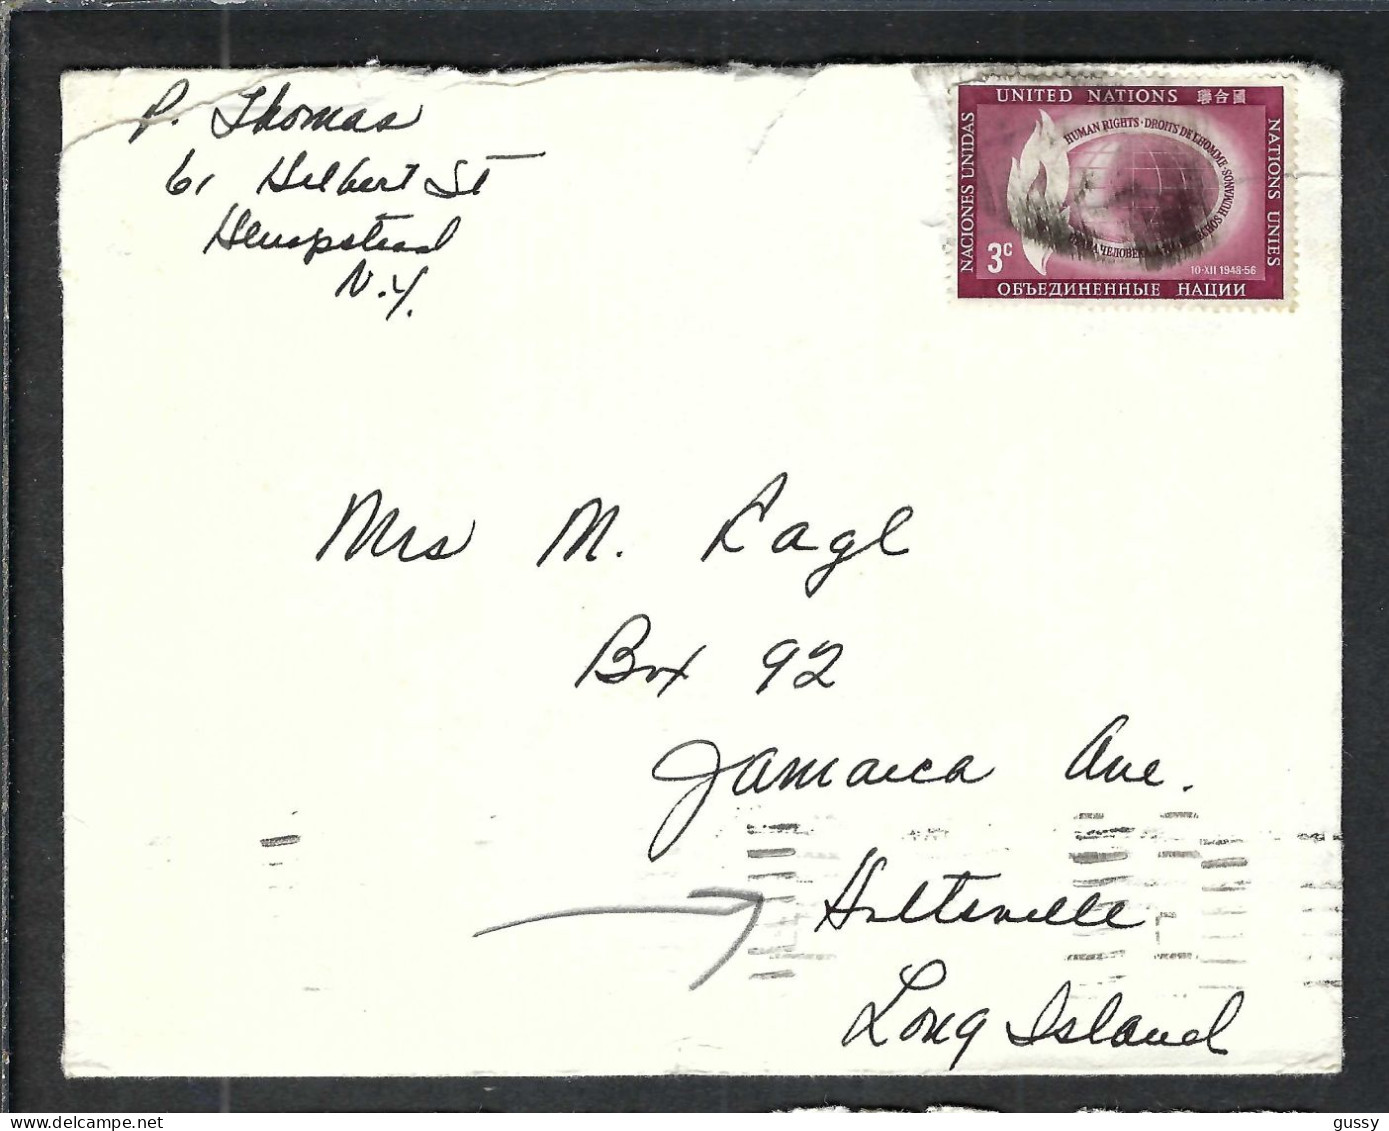 P. Thomas
61 Hilbert St
Hempstead
N.Y.
UNITED NATIONS 聯合國
NACIONES UNIDAS
NATIONS UNIES
HUMAN RIGHTS · DROITS DE L'HOMME ·
HUMANOS
ЧЕЛОВЕКА
3c
10·XII 1948-56
ОБЪЕДИНЕННЫЕ НАЦИИ
Mrs M. Kagl
Box 92
Jamaica Ave.
Holtsville
Long Island
delcampe.net
gussy